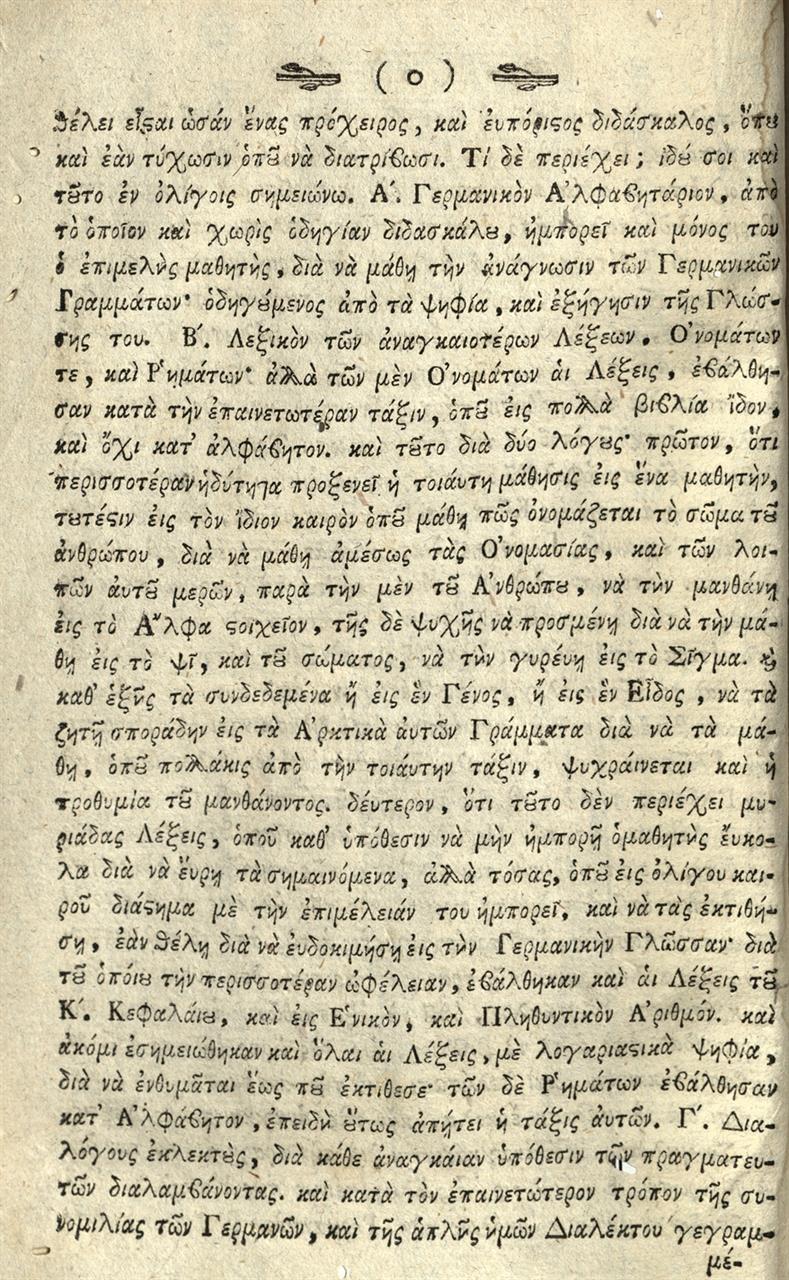 ( o )
θέλει εἶϛαι ὡσάν ἕνας πρόχειρος, καὶ ἐυπόριϛος διδάσκαλος, ὅπȣ
καὶ ἐὰν τύχωσιν ὁπȣ͂ νὰ διατρίβωσι. Τί δὲ περιέχει; ἰδȣ́ σοι καὶ
τȣ͂το ἐν ὀλίγοις σημειώνω. Α΄. Γερμανικὸν Α᾿λφαβητάριον, ἀπὸ
τὸ ὁποῖον καὶ χωρὶς ὁδηγίαν διδασκάλȣ, ἠμπορεῖ καὶ μόνος του
ὁ ἐπιμελὴς μαθητὴς, διὰ νὰ μάθῃ τὴν ἀνάγνωσιν τῶν Γερμανικῶν
Γραμμάτων· ὁδηγȣ́μενος ἀπὸ τὰ ψηφία, καὶ ἐξήγησιν τῆς Γλώσ-
σης του. Β΄. Λεξικὸν τῶν ἀναγκαιοτέρων Λέξεων. Ο᾿νομάτων
τε, καὶ Ρ῾ημάτων· ἀλλὰ τῶν μὲν Ο᾿νομάτων ἁι Λέξεις, ἐβάλθη-
σαν κατὰ τὴν ἐπαινετωτέραν τάξιν, ὁπȣ͂ εἰς πολλὰ βιβλία ἴδον,
καὶ ὄχι κατ᾿ ἀλφάβητον. καὶ τȣ͂το διὰ δύο λόγȣς· πρῶτον, ὅτι
περισσοτέραν ἡδύτητα προξενεῖ ἡ τοιάυτη μάθησις εἰς ἕνα μαθητὴν,
τȣτέϛιν εἰς τὸν ἴδιον καιρὸν ὁπȣ͂ μάθῃ πῶς ὀνομάζεται τὸ σῶμα τȣ͂
ἀνθρώπου, διὰ νὰ μάθῃ ἀμέσως τὰς Ο᾿νομασίας, καὶ τῶν λοι-
πῶν ἀυτȣ͂ μερῶν, παρὰ τὴν μὲν τȣ͂ Α᾿νθρώπȣ, νὰ τὴν μανθάνῃ
εἰς τὸ Α῎λφα ϛοιχεῖον, τῆς δὲ ψυχῆς νὰ προσμένῃ διὰ νὰ τὴν μά-
θῃ εἰς τὸ ψῖ, καὶ τȣ͂ σώματος, νὰ τὴν γυρέυῃ εἰς τὸ Σῖγμα. ϗ
καθ᾿ ἑξῆς τὰ συνδεδεμένα ἢ εἰς ἓν Γένος, ἢ εἰς ἓν Εἶδος, νὰ τὰ
ζητῇ σποράδην εἰς τὰ Α᾿ρκτικὰ ἀυτῶν Γράμματα διὰ νὰ τὰ μά-
θῃ, ὁπȣ͂ πολλάκις ἀπὸ τὴν τοιάυτην τάξιν, ψυχράινεται καὶ ἡ
προθυμία τȣ͂ μανθάνοντος. δέυτερον, ὅτι τȣ͂το δὲν περιέχει μυ-
ριάδας Λέξεις, ὁποῦ καθ᾿ ὑπόθεσιν νὰ μὴν ἠμπορῇ ὁμαθητὴς ἔυκο-
λα διὰ νὰ ἕυρῃ τὰ σημαινόμενα, ἀλλὰ τόσας, ὁπȣ͂ εἰς ὀλίγου και-
ροῦ διάϛημα μὲ τὴν ἐπιμέλειάν του ἠμπορεῖ, καὶ νὰ τὰς ἐκτιθή-
σῃ, ἐὰν θέλῃ διὰ νὰ ἐυδοκιμήσῃ εἰς τὴν Γερμανικὴν Γλῶσσαν· διὰ
τȣ͂ ὁποίȣ τὴν περισσοτέραν ὠφέλειαν, ἐβάλθηκαν καὶ ἁι Λέξεις τȣ͂
Κ΄. Κεφαλάιȣ, καὶ εἰς Ε῾νικὸν, καὶ Πληθυντικὸν Α᾿ριθμόν. καὶ
ἀκόμι ἐσημειώθηκαν καὶ ὅλαι ἁι Λέξεις, μὲ λογαριαϛικὰ ψηφία,
διὰ νὰ ἐνθυμᾶται ἕως πȣ͂ ἐκτιθεσε· τῶν δὲ Ρ῾ημάτων ἐβάλθησαν
κατ᾿ Α᾿λφάβητον, ἐπειδὴ ȣ῞τως ἀπήτει ἡ τάξις ἀυτῶν. Γ΄. Δια-
λόγους ἐκλεκτȣ̀ς, διὰ κάθε ἀναγκάιαν ὑπόθεσιν τῶν πραγματευ-
τῶν διαλαμβάνοντας. καὶ κατὰ τὸν ἐπαινετώτερον τρόπον τῆς συ-
νομιλίας τῶν Γερμανῶν, καὶ τῆς ἁπλῆς ἡμῶν Διαλέκτου γεγραμ-
μέ-